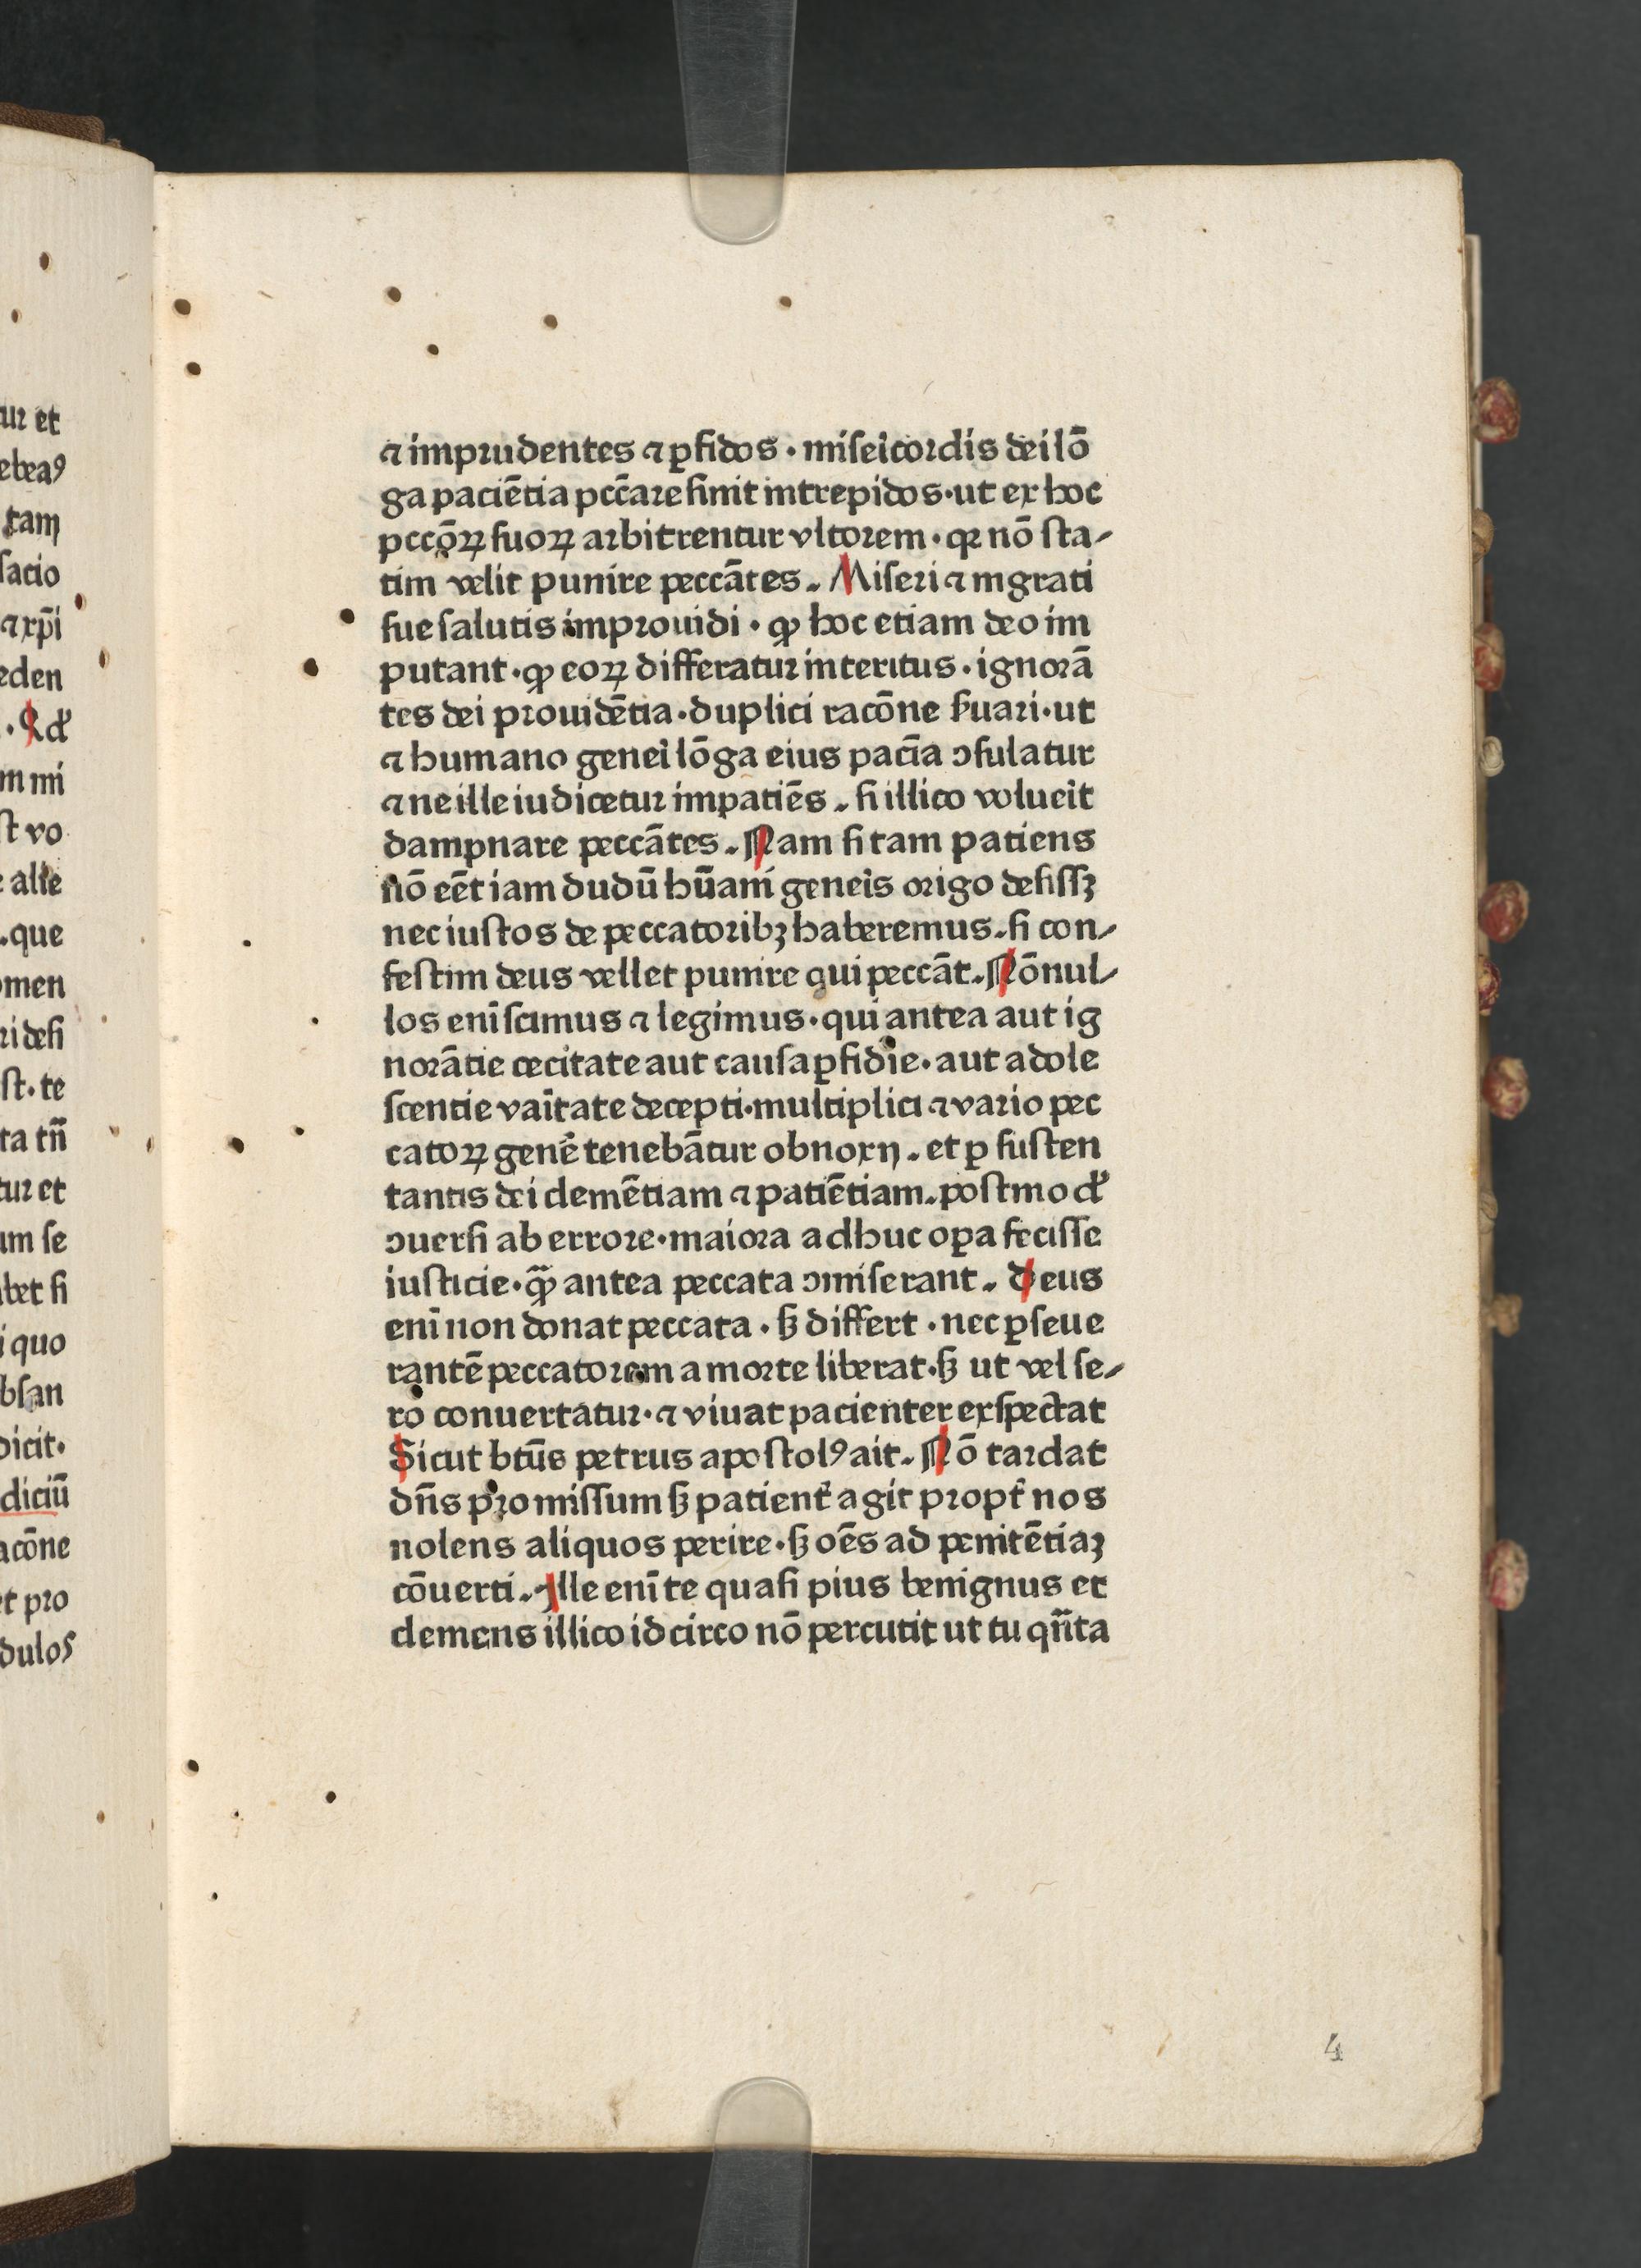 ur et
ebeaꝯ
tam
facio
⁊ xp̄i
eden
. Qd'
m mi
st vo
alie
.que
omen
ri desi
st· te
ta tn̄
tur et
um se
bet si
i quo
bsan
dicit·
diciū
acōne
et pro
dulos
⁊ imprudentes ⁊ ꝑfidos · miseicordis dei lō
ga paciētia pcc̄are sinit intrepidos·ut ex hoc
pccōꝝ suoꝝ arbitrentur vltorem · qꝛ nō sta⸗
tim velit punire peccātes. Miseri ⁊ ingrati
sue salutis improuidi · ꝙ hoc etiam deo im
putant·ꝙ eoꝝ differatur interitus · ignorā
tes dei prouidētia·duplici racōne ẜuari·ut
⁊ humano genei lōga eius pacīa ↄsulatur
⁊ ne ille iudicetur impatiēs. si illico volueit
dampnare peccātes. Nam si tam patiens
nō eēt iam dudū hūani geneis origo defissꝫ
nec iustos de peccatoribꝫ haberemus. si con⸗
festim deus vellet punire qui peccāt. Nōnul⸗
los eni̅ scimus ⁊ legimus·qui antea aut ig
norātie cecitate aut causa ꝑfidie·aut adole
scentie vaītate decepti·multiplici ⁊ vario pec
catoꝝ genē tenebātur obnoxij. et ꝑ susten
tantis dei clemētiam ⁊ patiētiam. postmod'
ↄuersi ab errore·maiora adhuc oꝑa fecisse
iusticie·ꝙ̄ antea peccata ↄmiserant. Deus
eni̅ non donat peccata · sꝫ differt · nec ꝑseue
rantē peccatorem a morte liberat·sꝫ ut vel se⸗
ro conuertatur·⁊ viuat pacienter exspectat
Sicut btūs petrus apostolꝯ ait. Nō tardat
dn̄s promissum sꝫ patient̉ agit propt̉ nos
nolens aliquos perire·sꝫ oēs ad penitētiaꝫ
cōuerti. Ille eni̅ te quasi pius benignus et
clemens illico idcirco nō percutit ut tu qn̄ta
4